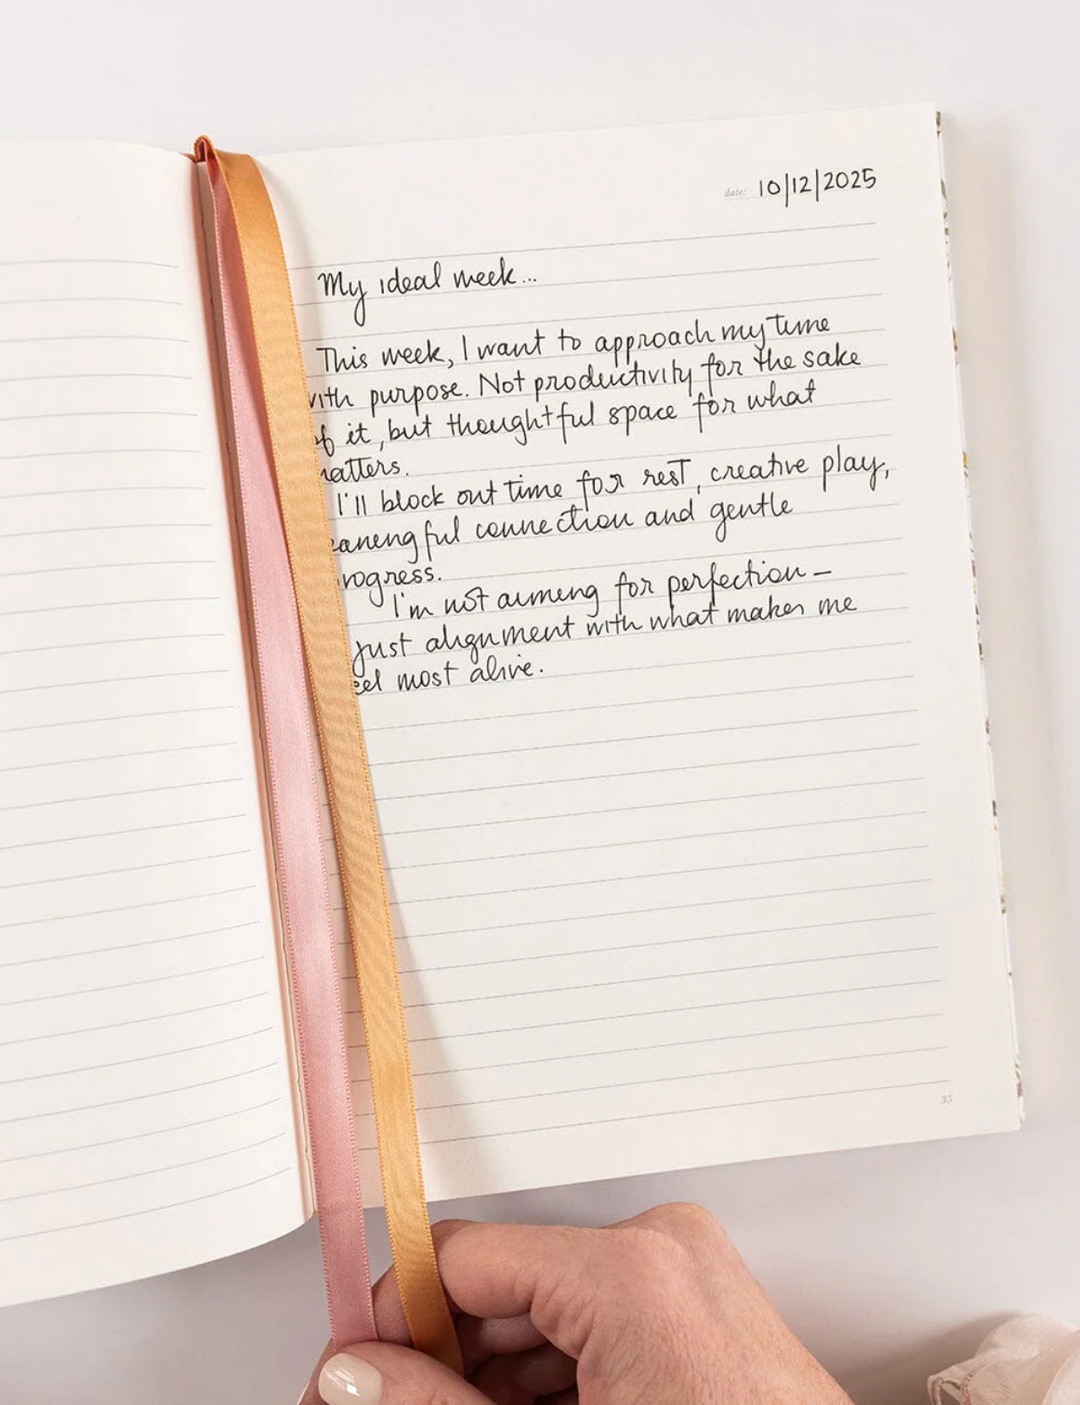 date: 10/12/2025
My ideal week...
This week, I want to approach my time
with purpose. Not productivity for the sake
of it, but thoughtful space for what
matters.
I'll block out time for rest, creative play,
meaningful connection and gentle
progress.
I'm not aiming for perfection—
just alignment with what makes me
feel most alive.
35